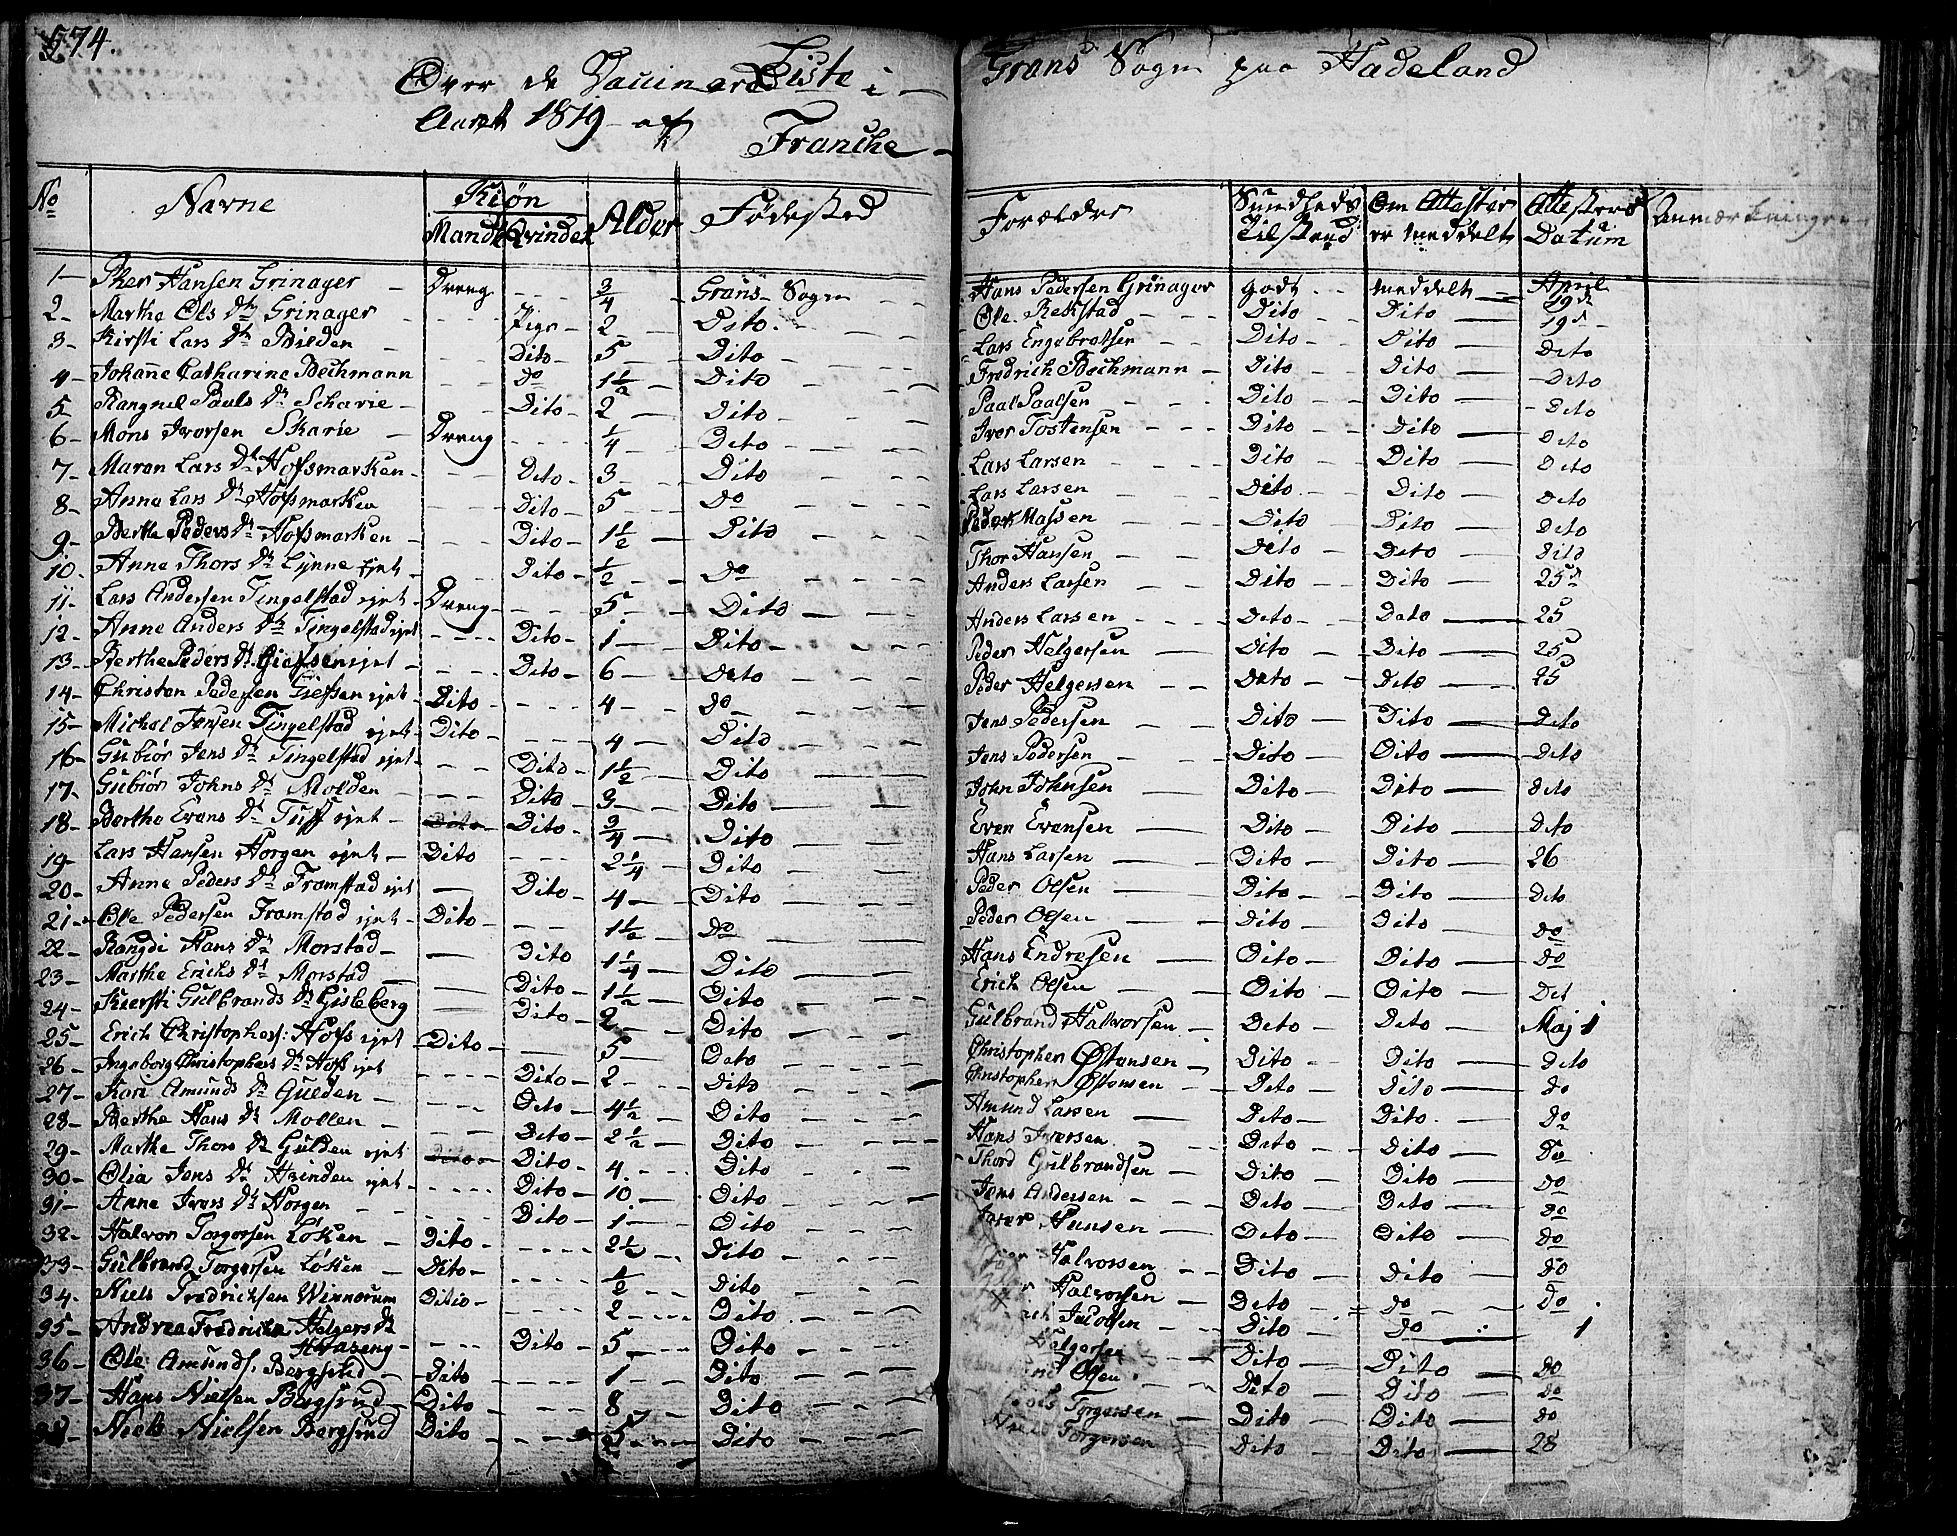 574.
Over de Vaccinerede i Grans Sogn paa Hadeland
Liste
Aaret 1819 - af Franche -
No Navne Kiøn Alder Fødested Forældre Sundheds Tilstand Om Attester er meddelt Attestens Datum Anmærkninger
Mandk Qvindek
1 - Peer Hansen Grinager - Dreng - - - 3/4 Grans Sogn Hans Pedersen Grinager godt meddelt April 19d
2 - Marthe Ols Dtr Grinager - - - Pige - 2 - Dito Ole Rekstad Dito Dito 19d
3 - Kirsti Lars Dtr Bilden - - - Dito - 5 - Dito Lars Engebretsen Dito Dito Dito
4 - Johane Catharine Bechmann - - Do 1 1/2 - Dito Fredrich Bechmann - Dito Dito Dito
5 - Rangnil Pauls Dtr Scharie - - - Dito - 2 - Dito Paal Paalsen Dito Dito Dito
6 - Mons Iversen Skarie - Dreng - - - 1/4 Dito Iver Tostensen Dito Dito Dito
7 - Maren Lars Dtr Hofsmarken - - - Dito - 3 - Dito Lars Larsen Dito Dito Dito
8 - Anne Lars Dtr Hofsmarken - - Dito - 5 - Do Lars Larsen Dito Dito Dito
9 - Berthe Peders Dtr Hofsmarken - - - Dito - 1 1/2 Dito Peder Massen Dito Dito Dito
10 - Anne Thors Dtr Lynne ejet - - Dito - 1/2 - Do Thor Hansen Dito Dito Dito
11 - Lars Andersen Tingelstad ejet - Dreng - - - 5 - Dito Anders Larsen Dito Dito 25d
12 - Anne Anders Dtr Tingelstad ejet - - - Dito - 1 - Dito Anders Larsen Dito Dito 25
13 - Berthe Peders Dtr Giefsen ejet - - - Dito - 6 - Dito Peder Helgersen Dito Dito 25
14 - Christen Pedersen Giefsen ejet - Dito - - - 4 - Do Peder Helgersen Dito Dito 25
15 - Michel Jensen Tingelstad ejet - Dito - - - 4 - Dito Jens Pedersen Dito Dito Dito
16 - Gubiør Jens Dtr Tingelstad ejet - - - Dito - 1 1/2 - Dito Jens Pedersen Dito Dito Dito
17 - Gubiør Johns Dtr Molden - Dito 3 - Dito John Johnsen Dito Dito Dito
18 - Berthe Evens Dtr Tuff ejet - Dito - 3/4 - Dito Even Evensen Dito Dito Dito
19 Lars Hansen Horgen ejet - Dito - - - 2 1/4 Dito Hans Larsen Dito Dito 26
20 - Anne Peders Dtr Framstad ejet - Dito - 4 - Dito Peder Olsen Dito Dito Dito
21 - Ole Pedersen Framstad ejet - Dito - - - 1 1/2 - Do Peder Olsen Dito Dito Do
22 - Rangdi Hans Dtr Morstad - - Dito 1 1/4 - Dito Hans Endresen Dito Dito Do
23 - Marthe Erichs Dtr Morstad - - Dito - 1 1/2 - Dito Erich Olsen Dito Dito Dit
24 - Kiersti Gulbrands Dtr Gisleberg - Dito - 2 - Dito Gulbrand Halvorsen - Dito Dito Maj 1
25 - Erich Christophers: Hofs ejet - Dito - 5 - Dito Christopher Østensen - Dito Dito Dito
26 - Ingeborg Christophers Dtr Hofs ejet - - - Dito - 2 - Dito Christopher Østensen Dito Dito do
27 - Kari Amunds Dtr Gulden - - - Dito - 4 1/2 - Dito Amund Larsen Dito Dito do
28 - Berthe Hans Dtr Mollen - - - Dito - 2 1/2 - Dito Hans Iversen Dito Dito Do
29 - Marthe Thors Dtr Gulden ejet Dito - 4 - Dito Thord Gulbrandsen Dito Dito do
30 - Olia Jens Dtr Hvinden ejet - - - Dito - 10 - Dito Jens Andersen Dito Dito do
31 - Anne Ivers Dtr Horgen - - - Dito - 1 - Dito Iver Hansen Dito Dito do
32 - Halvor Torgersen Løken - Dito - - - 2 1/2 - Dito Halvorsen Dito Dito do
33 - Gulbrand Torgersen Løken - Dito - - - 1/2 - Dito Halvorsen Dito do do
34 - Niels Fredrichsen Winnorum Ditio - - - 2 - Dito Jacobsen Dito do 1
35 - Andrea Fredricka Helgers Dtr Hvaleng - - - Dito - 5 - Dito Helgersen Dito Dito do
36 - Ole Amunds. Bergsund - Dito - - - 1 - Dito Olsen Dito Dito do
37 - Hans Nielsen Bergsund - Dito - - - 8 - Dito Niels Torgersen Dito Dito do
38 - Niels Nielsen Bergsund Dito - - - 5 - Dito Niels Torgersen Dito Dito 28